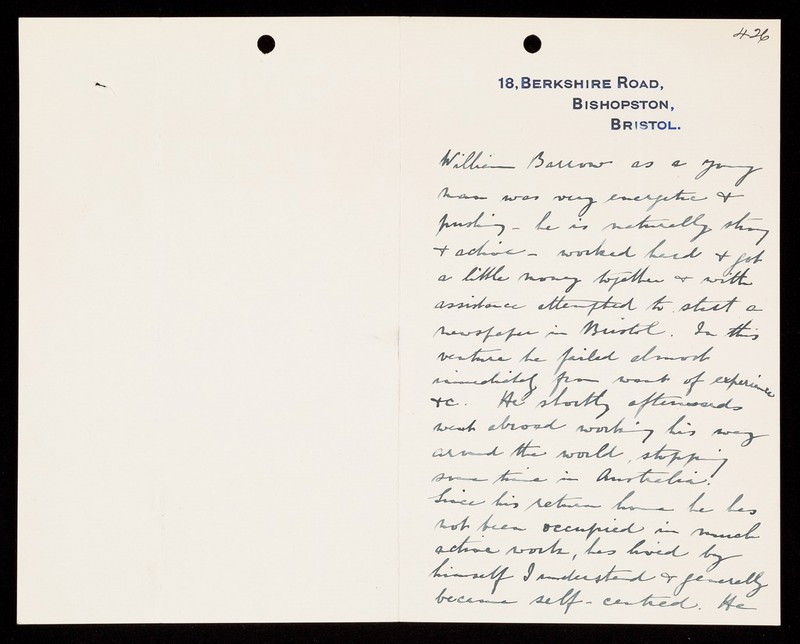 426
18, BERKSHIRE ROAD,
BISHOPSTON,
BRISTOL.
William Barrow as a young
man was very energetic &
pushing - he is naturally strong
& active - worked hard & got
a little money together & with
assistance attempted to start a
newspaper in Bristol. In this
venture he failed almost
immediately from want of experience
&c. He shortly afterwards
went abroad working his way
around the world, stopping
some time in Australia.
Since his return home he has
not been occupied in much
active work, has lived by
himself I understand & generally
become self-centred. He